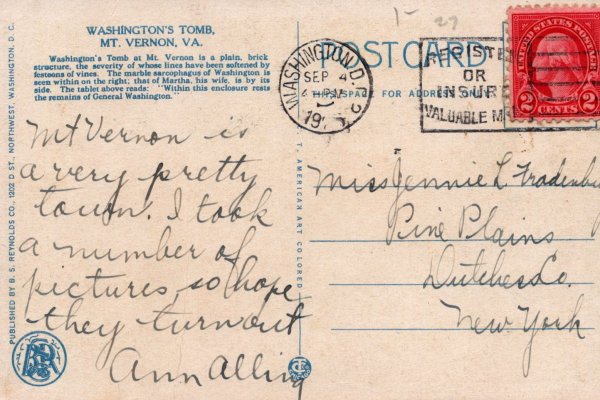 WASHINGTON'S TOMB,
MT. VERNON, VA.
Washington's Tomb at Mt. Vernon is a plain, brick
structure, the severity of whose lines have been softened by
festoons of vines. The marble sarcophagus of Washington is
seen within on the right; that of Martha, his wife, is by its
side. The tablet above reads: "Within this enclosure rests
the remains of General Washington."
Mt Vernon is
a very pretty
town. I took
a number of
pictures so hope
they turn out
Ann Alling
PUBLISHED BY B. S. REYNOLDS CO., 1202 D ST., NORTHWEST, WASHINGTON, D. C.
T. AMERICAN ART COLORED
POST CARD
THIS SPACE FOR ADDRESS ONLY
WASHINGTON, D.C.
SEP 4
PM
19
REGISTE
OR
INSURE
VALUABLE M
UNITED STATES POSTAGE
2 CENTS 2
Miss Jennie L. Fradenbu
Pine Plains
Dutchess Co.
New York